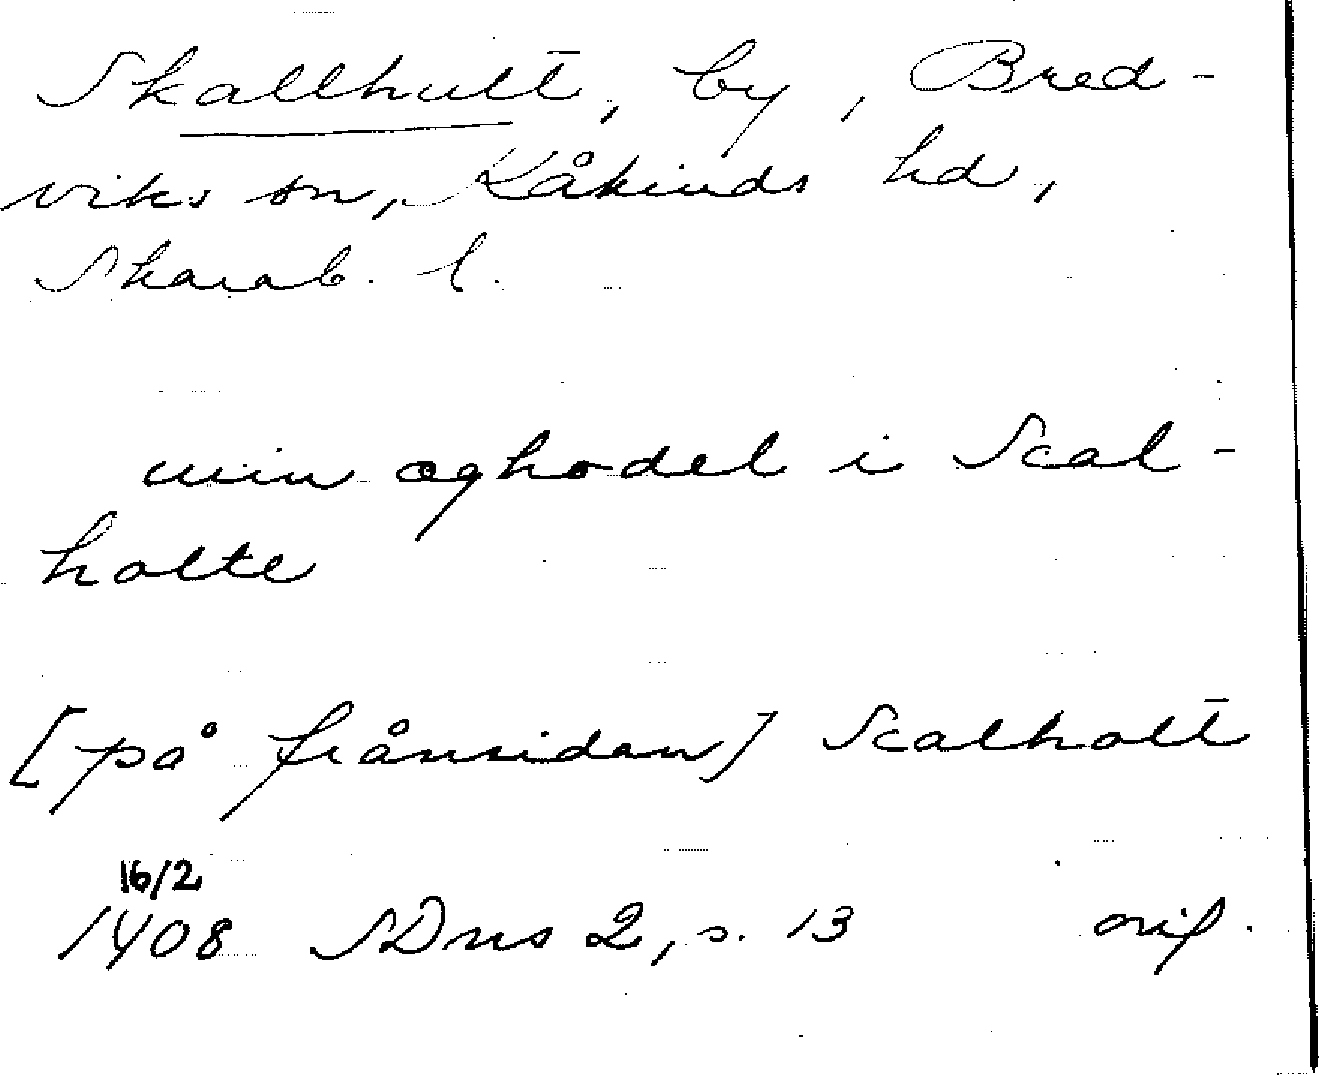 Skallhult, by, Bred-
viks sn, Kåkinds hd,
Skarab. l.
min æghodel i Scal-
holte
[på frånsidan] Scalholt
16/2
1408 SDns 2, s. 13 orig.